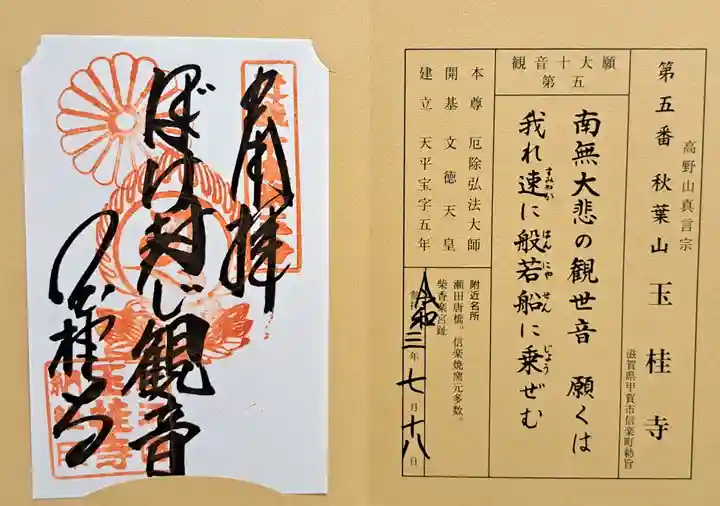 高野山真言宗
第五番 秋葉山 玉桂寺
滋賀県甲賀市信楽町勅旨
観音十大願
第五
南無大悲の観世音 願くは
我れ速に般若船に乗ぜむ
すみやか はんにやせん じよう
本尊 厄除弘法大師
開基 文徳天皇
建立 天平宝字五年
附近名所
瀬田唐橋。信楽焼窯元多数。
紫香楽宮趾
令和三年七月十八日
奉拝
ぼけ封じ観音
玉桂寺